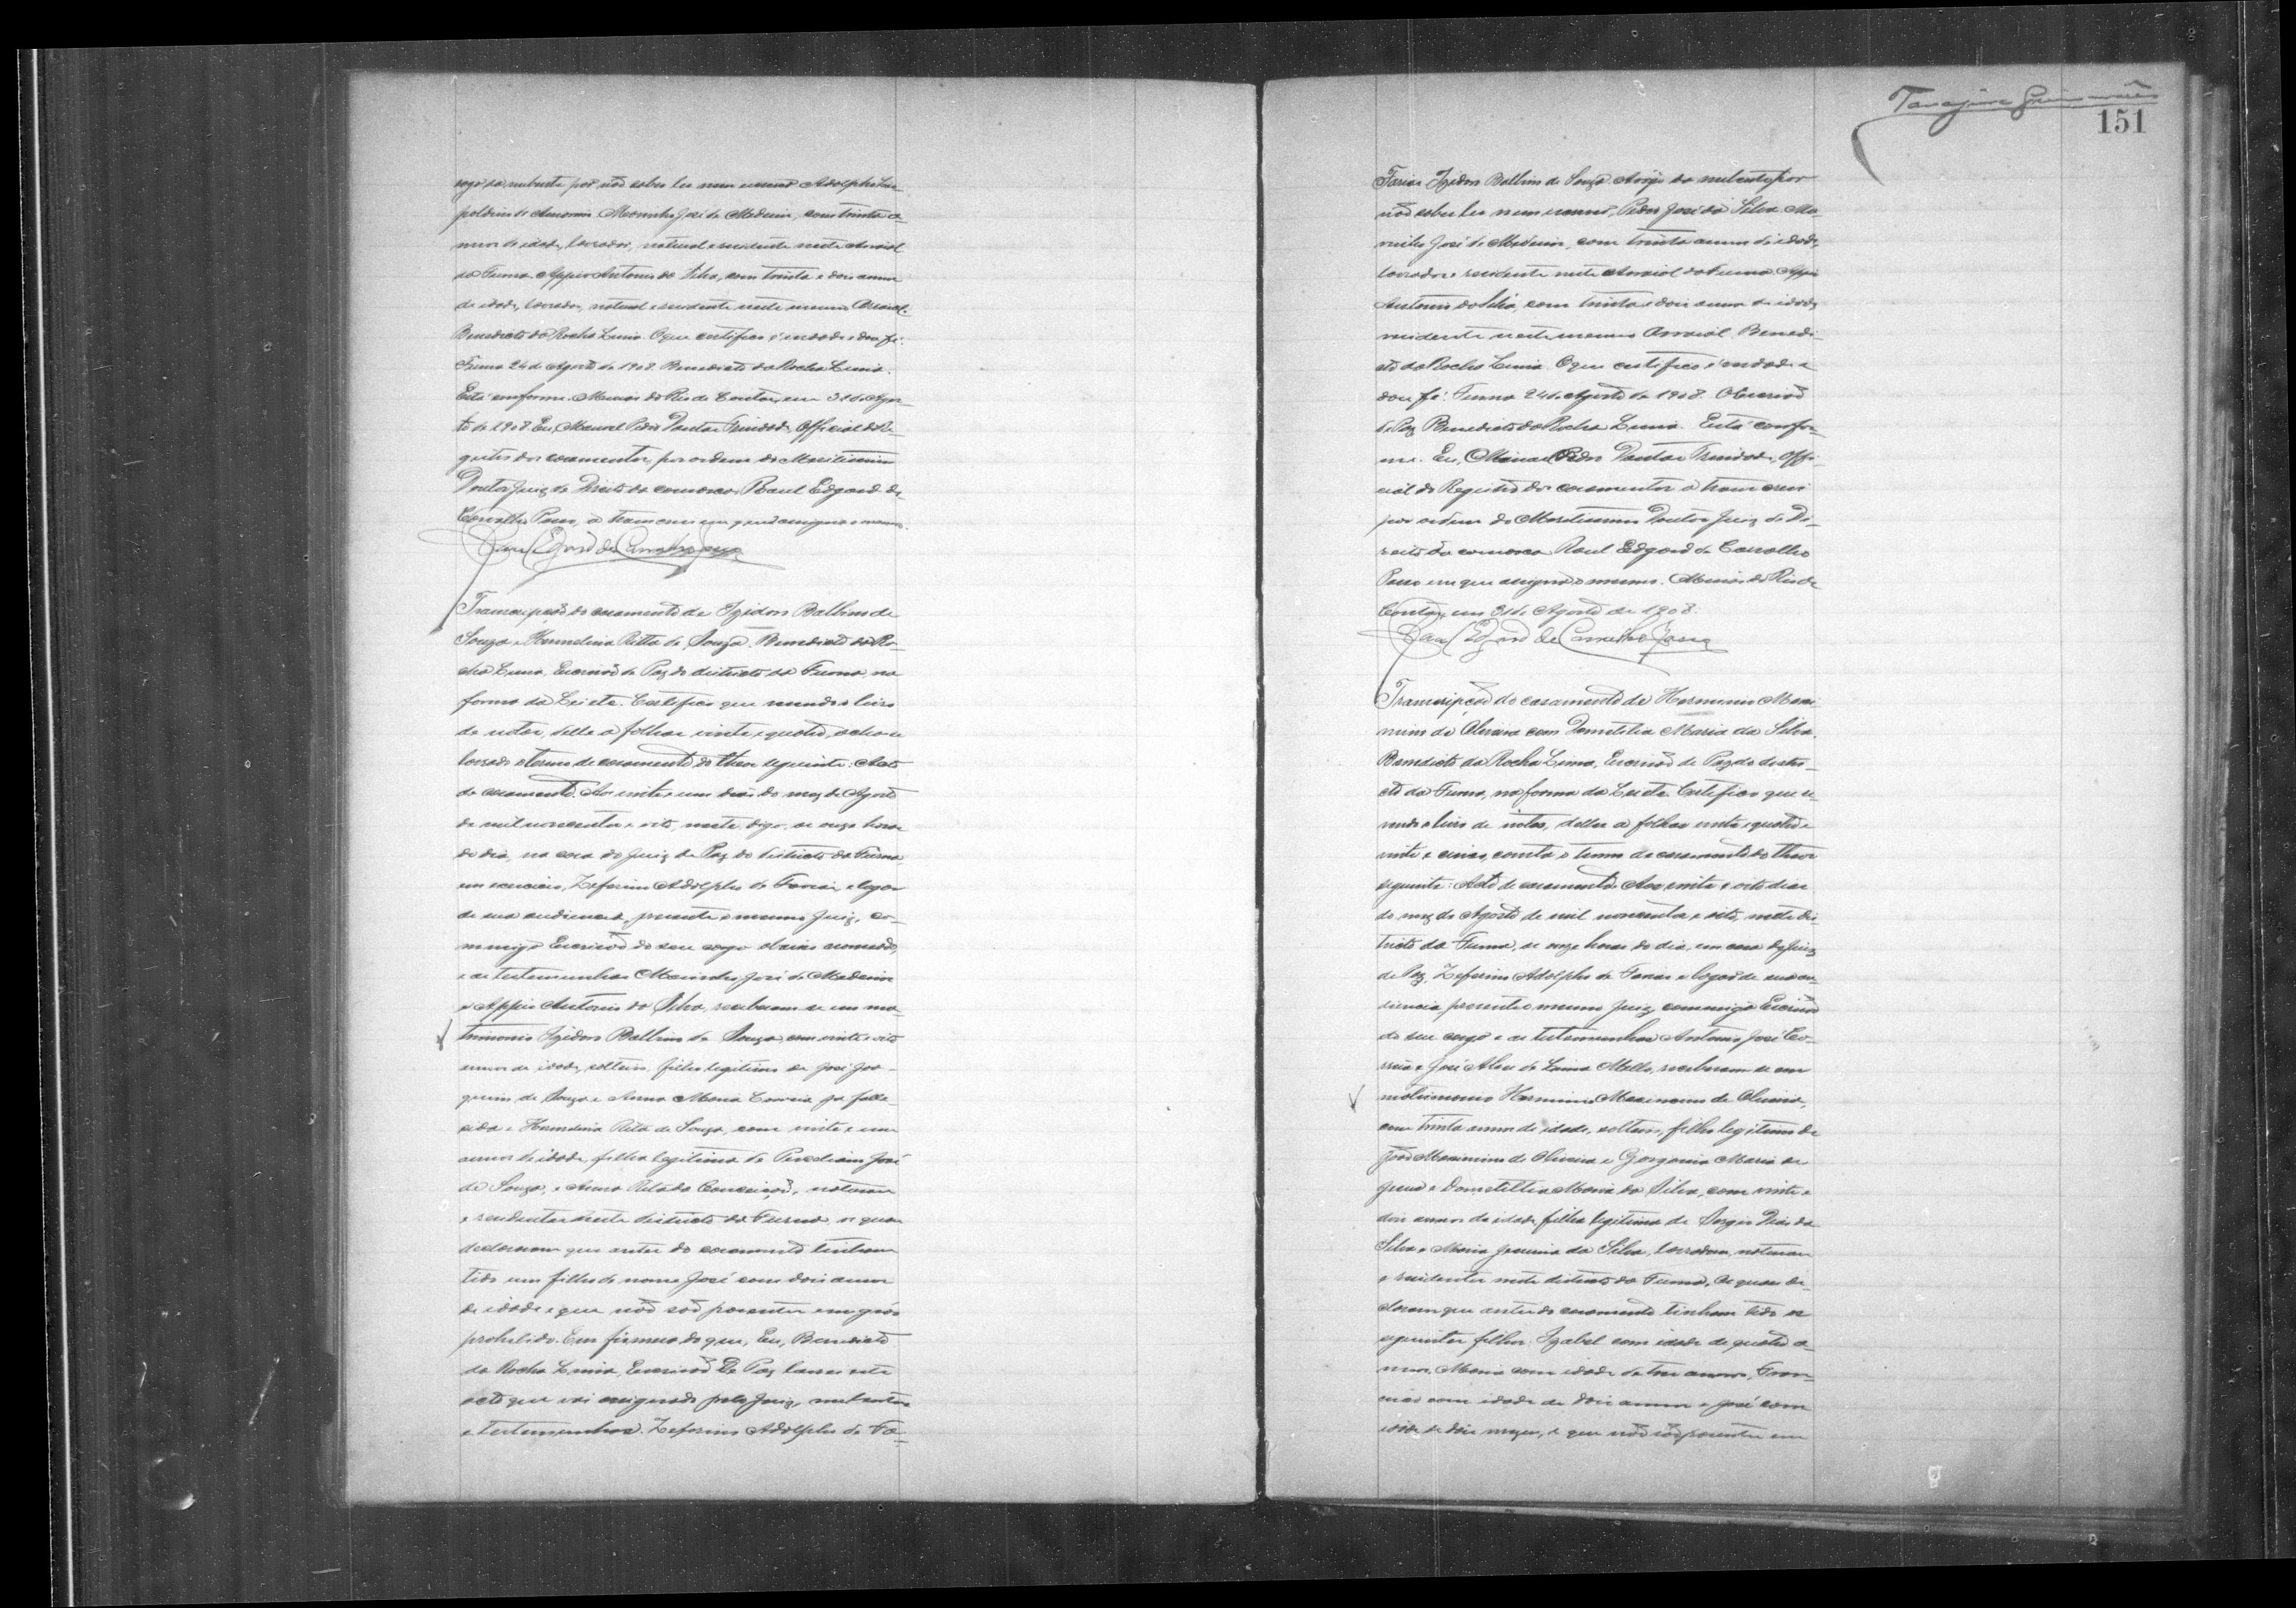 rogo da nubente por não saber ler nem escrever Adolpho Leo-
poldino de Amorim Marinho José de Medeiros, com trinta a-
nnos de idade, lavrador, natural e residente neste Arraial
da Furna. Appio Antonio da Silva, com trinta e dois annos
de idade, lavrador, natural e residente neste mesmo Arraial.
Benedicto da Rocha Lima. O que certifico é verdade e dou fé.
Furna 24 de Agosto de 1908. Benedicto da Rocha Lima.
Está conforme. Minas do Rio de Contas, em 31 de Agos-
to de 1908. Eu, Manoel Pedro Dantas Trindade, Official do Re-
gistro dos casamentos, por ordem do Meritissimo
Doutor Juiz de Direito da comarca, Raul Edgard de
Carvalho Passo, a transcrevi em que assigna o mesmo.
Raul Edgard de Carvalho Passo
Transcripção do casamento de Izidoro Balbino de
Souza e Hermelina Ritta de Souza. Benedicto da Ro-
cha Lima, Escrivão de Paz do districto da Furna, na
forma da Lei etc. Certifico que revendo o livro
de notas, delle a folhas vinte e quatro, acha-se
lavrado o termo de casamento do theor seguinte: Acto
de casamento. Aos vinte e um dias do mez de Agosto
de mil novecentos e oito, neste, digo, as onze horas
do dia, na casa do Juiz de Paz do districto da Furna,
em exercicio, Zeferino Adolpho de Farias, e logar
de sua audiencia, presente o mesmo Juiz, co-
mmigo Escrivão do seu cargo abaixo nomeado,
e as testemunhas Marinho José de Medeiros
e Appio Antonio da Silva, receberam-se em ma-
trimonio Izidoro Balbino de Souza, com vinte e oito
annos de idade, solteiro, filho legitimo de José Joa-
quim de Souza e Anna Maria Correia ja falle-
cida e Hermelina Rita de Souza, com vinte e um
annos de idade, filha legitima de José
de Souza, e Anna Rita da Conceição, naturaes
e residentes neste districto da Furna, os quaes
declararam que antes do casamento tinham
tido um filho de nome José com dois annos
de idade e que não são parentes em gráo
prohibido. Em firmeza do que, Eu, Benedicto
da Rocha Lima, Escrivão de Paz lavrei este
acto que vai assignado pelo Juiz, nubentes
e testemunhas. Zeferino Adolpho de Fa-
151
Farias Izidoro Balbino de Souza. Arogo da nubente por
não saber ler nem escrever, Pedro José da Silva. Ma-
rinho José de Medeiros, com trinta annos de idade,
lavrador e residente neste Arraial da Furna. Appio
Antonio da Silva, com trinta e dois annos de idade,
residente neste mesmo Arraial. Benedi-
cto da Rocha Lima. O que certifico é verdade e
dou fé. Furna 24 de Agosto de 1908. O Escrivão
de Paz Benedicto da Rocha Lima. Está confor-
me. Eu, Manoel Pedro Dantas Trindade, Offi-
cial do Registro dos casamentos a transcrevi
por ordem do Meritissimo Doutor Juiz de Di-
reito da comarca Raul Edgard de Carvalho
Passo em que assigna o mesmo. Minas do Rio de
Contas, em 31 de Agosto de 1908.
Raul Edgard de Carvalho Passo
Transcripção do casamento de Herminio Maxi-
mino de Oliveira com Domitilia Maria da Silva.
Benedicto da Rocha Lima, Escrivão de Paz do distri-
cto da Furna, na forma da Lei etc. Certifico que re-
vendo o livro de notas, delle a folhas vinte e quatro e
vinte e cinco, consta o termo de casamento do theor
seguinte: Acto de casamento. Aos vinte e oito dias
do mez de Agosto de mil novecentos e oito, neste dis-
tricto da Furna, as onze horas do dia, em casa do Juiz
de Paz, Zeferino Adolpho de Farias e logar de sua au-
diencia, presente o mesmo Juiz, commigo Escrivão
do seu cargo e as testemunhas Antonio José Co-
rreia e José Alves de Lima Mello, receberam-se em
matrimonio Herminio Maximino de Oliveira,
com trinta annos de idade, solteiro, filho legitimo de
João Maximino de Oliveira e Gorgonia Maria de
Jesus e Domitillia Maria da Silva, com vinte e
dois annos de idade, filha legitima de Sergio Dias da
Silva e Maria da Silva, lavradores, naturaes
e residentes neste districto da Furna. Os quaes de-
claram que antes do casamento tinham tido os
seguintes filhos: Izabel com idade de quatro a-
nnos, Maria com idade de tres annos, Fran-
cisco com idade de dois annos e José com
idade de dois mezes, e que não são parentes em